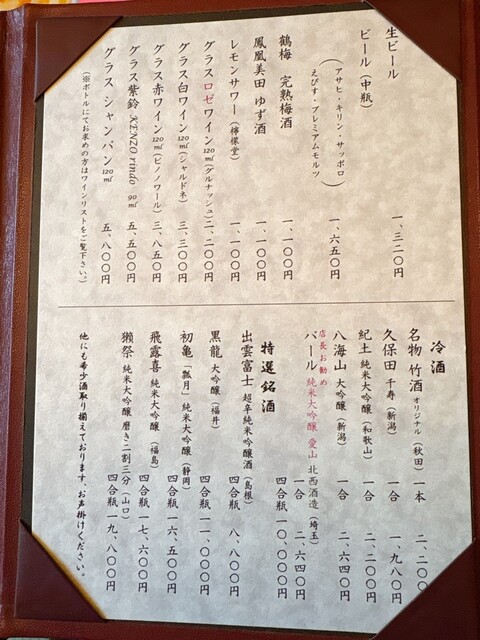 生ビール 一、三二〇円
ビール（中瓶） 一、六五〇円
（アサヒ・キリン・サッポロ
えびす・プレミアムモルツ）
鶴梅 完熟梅酒 一、一〇〇円
鳳凰美田 ゆず酒 一、一〇〇円
レモンサワー（檸檬堂） 一、一〇〇円
グラスロゼワイン120ml（グルナッシュ） 二、二〇〇円
グラス白ワイン120ml（シャルドネ） 三、三〇〇円
グラス赤ワイン120ml（ピノノワール） 三、八五〇円
グラス紫鈴 KENZO rindo 90ml 五、五〇〇円
グラス シャンパン 120ml 五、八〇〇円
（※ボトルにてお求めの方はワインリストをご覧下さい。）
冷酒
名物 竹酒 オリジナル（秋田） 一本 二、二〇〇
久保田 千寿（新潟） 一合 一、九八〇円
紀土 純米大吟醸（和歌山） 一合 二、二〇〇円
八海山 大吟醸（新潟） 一合 二、六四〇円
店長お勧め
パール 純米大吟醸 愛山 北西酒造（埼玉）
一合 二、六四〇円
四合瓶 一〇、〇〇〇円
特選銘酒
出雲富士 超辛純米吟醸酒（島根） 四合瓶 八、八〇〇円
黒龍 大吟醸（福井） 四合瓶 一一、〇〇〇円
初亀「瓢月」純米大吟醸（静岡） 四合瓶 一六、五〇〇円
飛露喜 純米大吟醸（福島） 四合瓶 一七、六〇〇円
獺祭 純米大吟醸 磨き二割三分（山口） 四合瓶 一九、八〇〇円
他にも希少酒取り揃えております、お声掛けください。